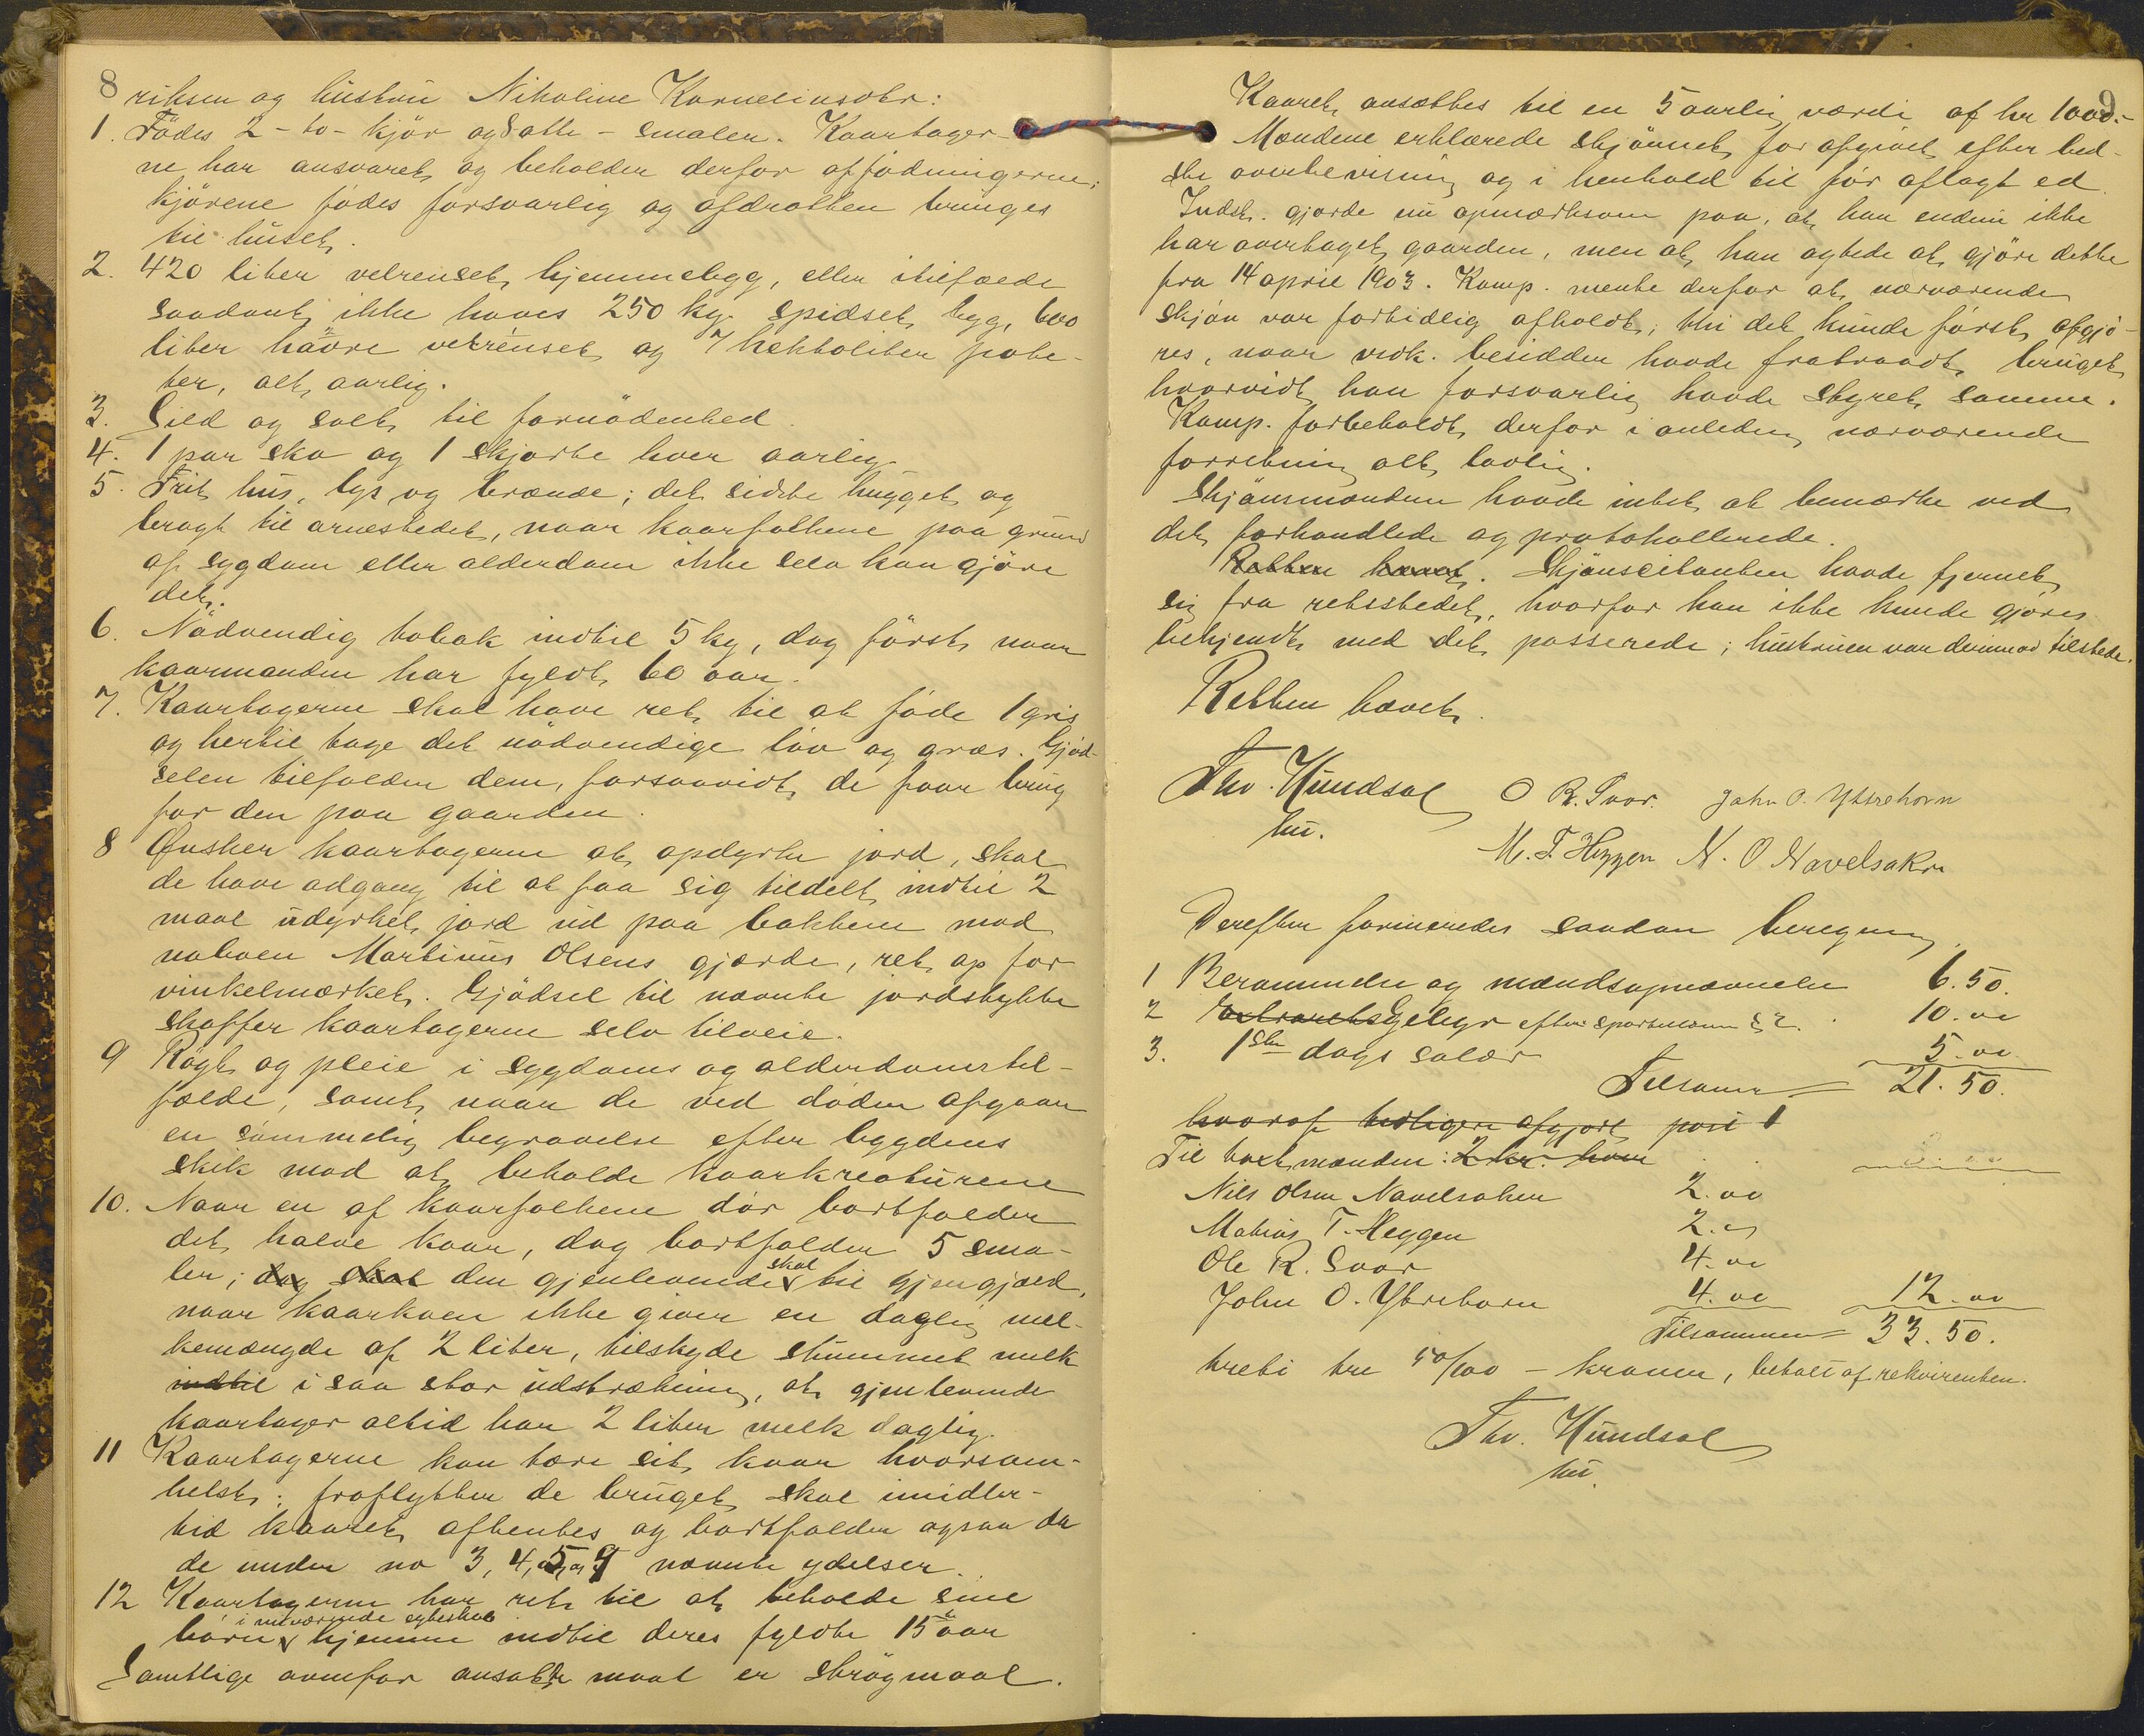 8
riksen og hustru Nikoline Korneliusdtr:
1. Födes 2 - to - kjör og 8 otte - smaler. Kaartager-
ne har ansvaret og beholder derfor affödningerne;
kjörene födes forsvarlig og afdrotten bringes
til huset.
2. 420 liter velrenset hjemmebygg, eller itilfælde
saadant ikke haves 250 kg. spidset bygg, 600
liter havre velrenset og 7 hektoliter pote-
ter, alt aarlig.
3. Sild og salt til fornödenhed.
4. 1 par sko og 1 skjorte hver aarlig.
5. Frit hus, lys og brænde; det sidste hugget og
bragt til arnestedet, naar kaarfolkene paa grund
af sygdom eller alderdom ikke selv kan gjöre
det.
6. Nödvendig tobak indtil 5 kg, dog först naar
kaarmanden har fyldt 60 aar.
7. Kaartagerne skal have ret til at föde 1 gris
og hertil tage det nödvendige löv og græs. Gjöd-
selen tilfalder dem, forsaavidt de faar brug
for den paa gaarden.
8 Önsker kaartagerne at opdyrke jord, skal
de have adgang til at faa sig tildelt indtil 2
maal udyrket jord ud paa bakken mod
naboen Martinus Olsens gjærde, ret op for
vinkelmærket. Gjödsel til nævnte jordstykke
skaffer kaartagerne selv tilveie.
9 Rögt og pleie i sygdoms og alderdomstil-
fælde, samt naar de ved döden afgaar
en sömmelig begravelse efter bygdens
skik mod at beholde kaarkreaturene
10. Naar en af kaarfolkene dör bortfalder
det halve kaar, dog bortfalder 5 sma-
ler; dog skal den gjenlevende skal til gjengjæld,
naar kaarkoen ikke giver en daglig mel-
kemængde af 2 liter, tilskyde skummet melk
indtil i saa stor udstrækning, at gjenlevende
kaartager altid har 2 liter melk daglig.
11 Kaartagerne kan tære sit kaar hvorsom-
helst; fraflytter de bruget skal imidler-
tid kaaret afhentes og bortfalder ogsaa da
de under no 3, 4, 5, og 9 nævnte ydelser.
12 Kaartagerne har ret til at beholde sine
börn i nuværende egteskab hjemme indtil deres fyldte 15 aar
Samtlige ovenfor ansatte maal er strögmaal.
9
Kaaret ansættes til en 5 aarlig værdi af kr 1000.-
Mændene erklærede skjönnet for afgivet efter bed-
ste overbevisning og i henhold til för aflagt ed.
Indst. gjorde nu opmærksom paa, at han endnu ikke
har overtaget gaarden, men at han agtede at gjöre dette
fra 14 april 1903. Komp. mente derfor at nærværende
skjön var fortidlig afholdt; thi det kunde först afgjö-
res, naar vedk. besidder havde fratraadt bruget
hvorvidt han forsvarlig havde styret samme.
Komp. forbeholdt derfor i anledn. nærværende
forretning alt lovlig.
Skjönsmændene havde intet at bemærke ved
det forhandlede og protokollerede.
Retten hævet. Skjönscitanten havde fjernet
sig fra retsstedet, hvorfor han ikke kunde gjöres
bekjendt med det passerede; hustruen var derimod tilstede.
Retten hævet.
Thv. Hundsal
O R. Svor. John O. Yttrehorn
M. T. Heggen N. O Navelsakr
Derefter formeredes saadan beregning
1 Berammelse og mændsopnævnelse 6.50.
2 Gebyr efter sportelloven § 2. 10.00
3. 1ste dags salær 5.00
Tilsam 21.50.
hvoraf tidligere afgjort post 1
Til bort mænden: 2 kr. hver
Nils Olsen Navelsaker 2.00
Matias T. Heggen 2.00
Ole R. Svor 4.00
John O. Ytrehorn 4.00 12.00
Tilsammen 33.50.
treti tre 50/100 - kroner, betalt af rekvirenten.
Thv. Hundsal